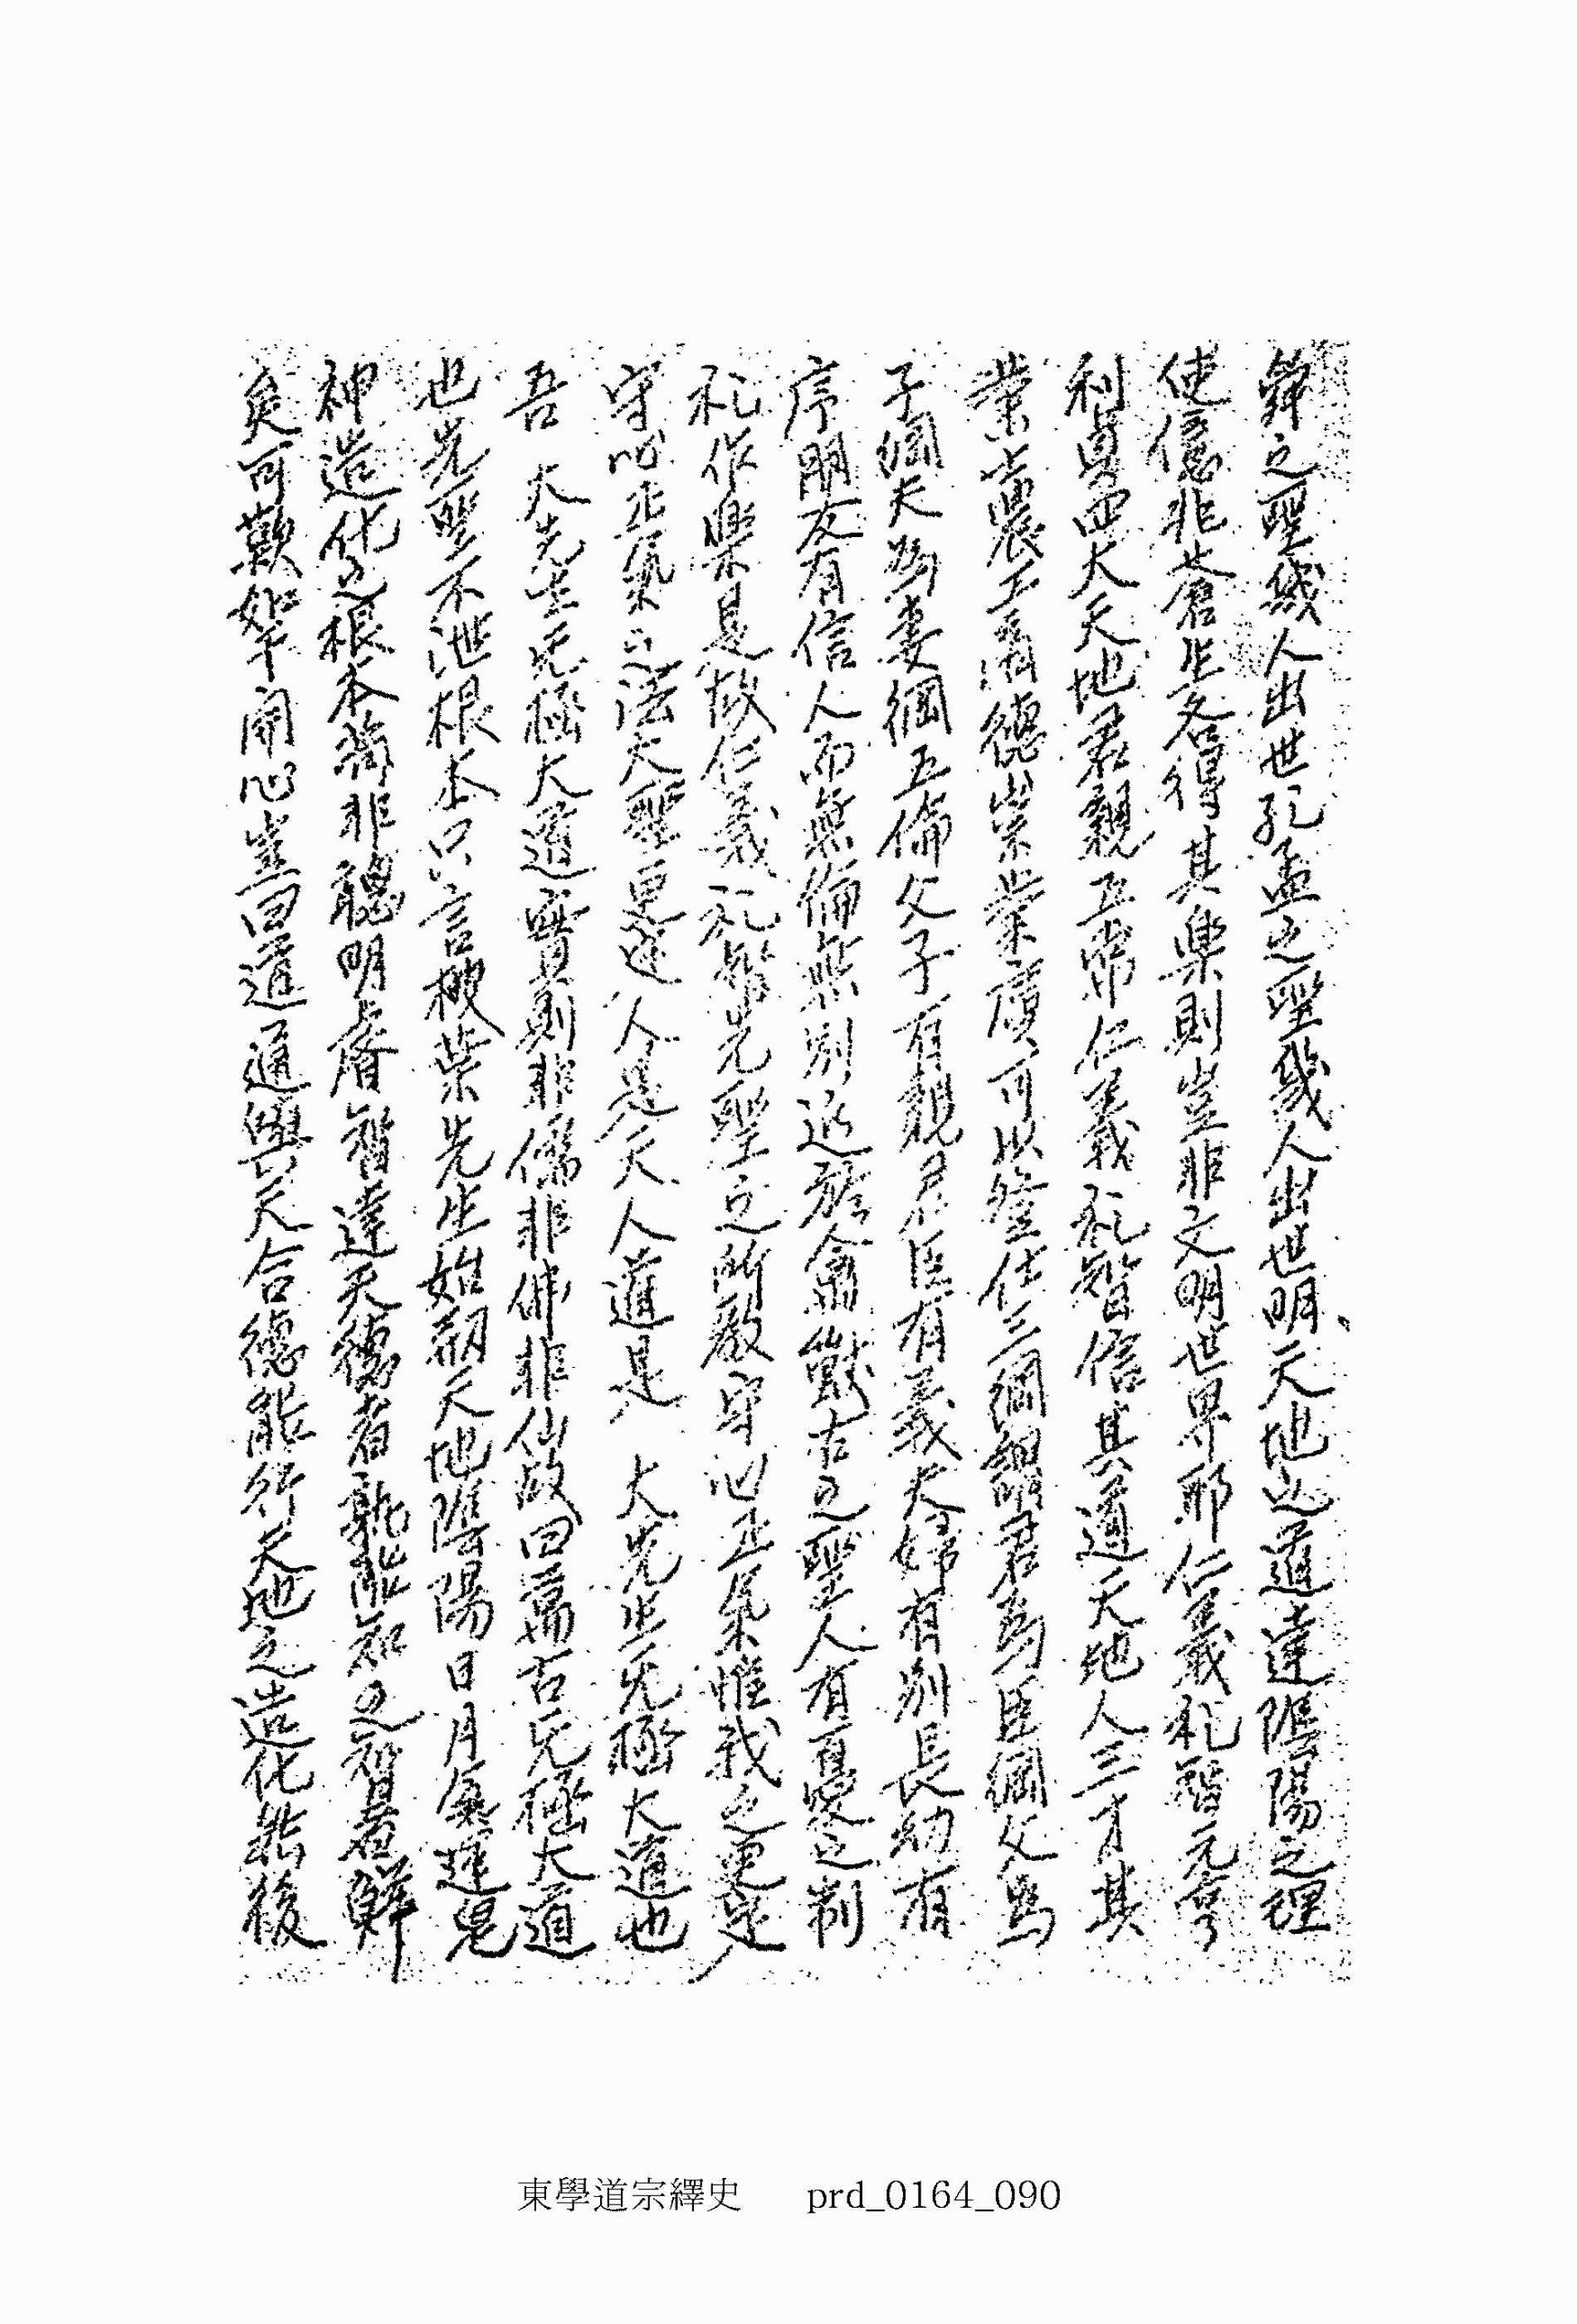 舜之聖幾人出世孔孟之聖幾人出世明天地之道達陰陽之理
使億非蒼生各得其樂則豈非文明世界耶仁義礼智元亨
利貞四大天地君親五常仁義礼智信其道天地人三才其
業士農工商德崇業廣可以登仕三綱謂君爲臣綱父爲
子綱夫爲妻綱五倫父子有親君臣有義夫婦有別長幼有
序朋友有信人而無倫無別近於禽獸古之聖人有憂之制
礼作樂是故仁義礼智先聖之所敎守心正氣惟我之更定
守心正氣之法大聖更定人是天人道是 大先生无極大道也
吾 大先生无極大道實則非儒非佛非仙故曰萬古无極大道
也先聖不泄根本只言枝葉先生始刱天地陰陽日月氣運鬼
神造化之根本苟非聰明睿智達天德者孰能知之知者鮮
矣可歎如干開心豈曰道通與天合德能行天地之造化然後
東學道宗繹史 prd_0164_090